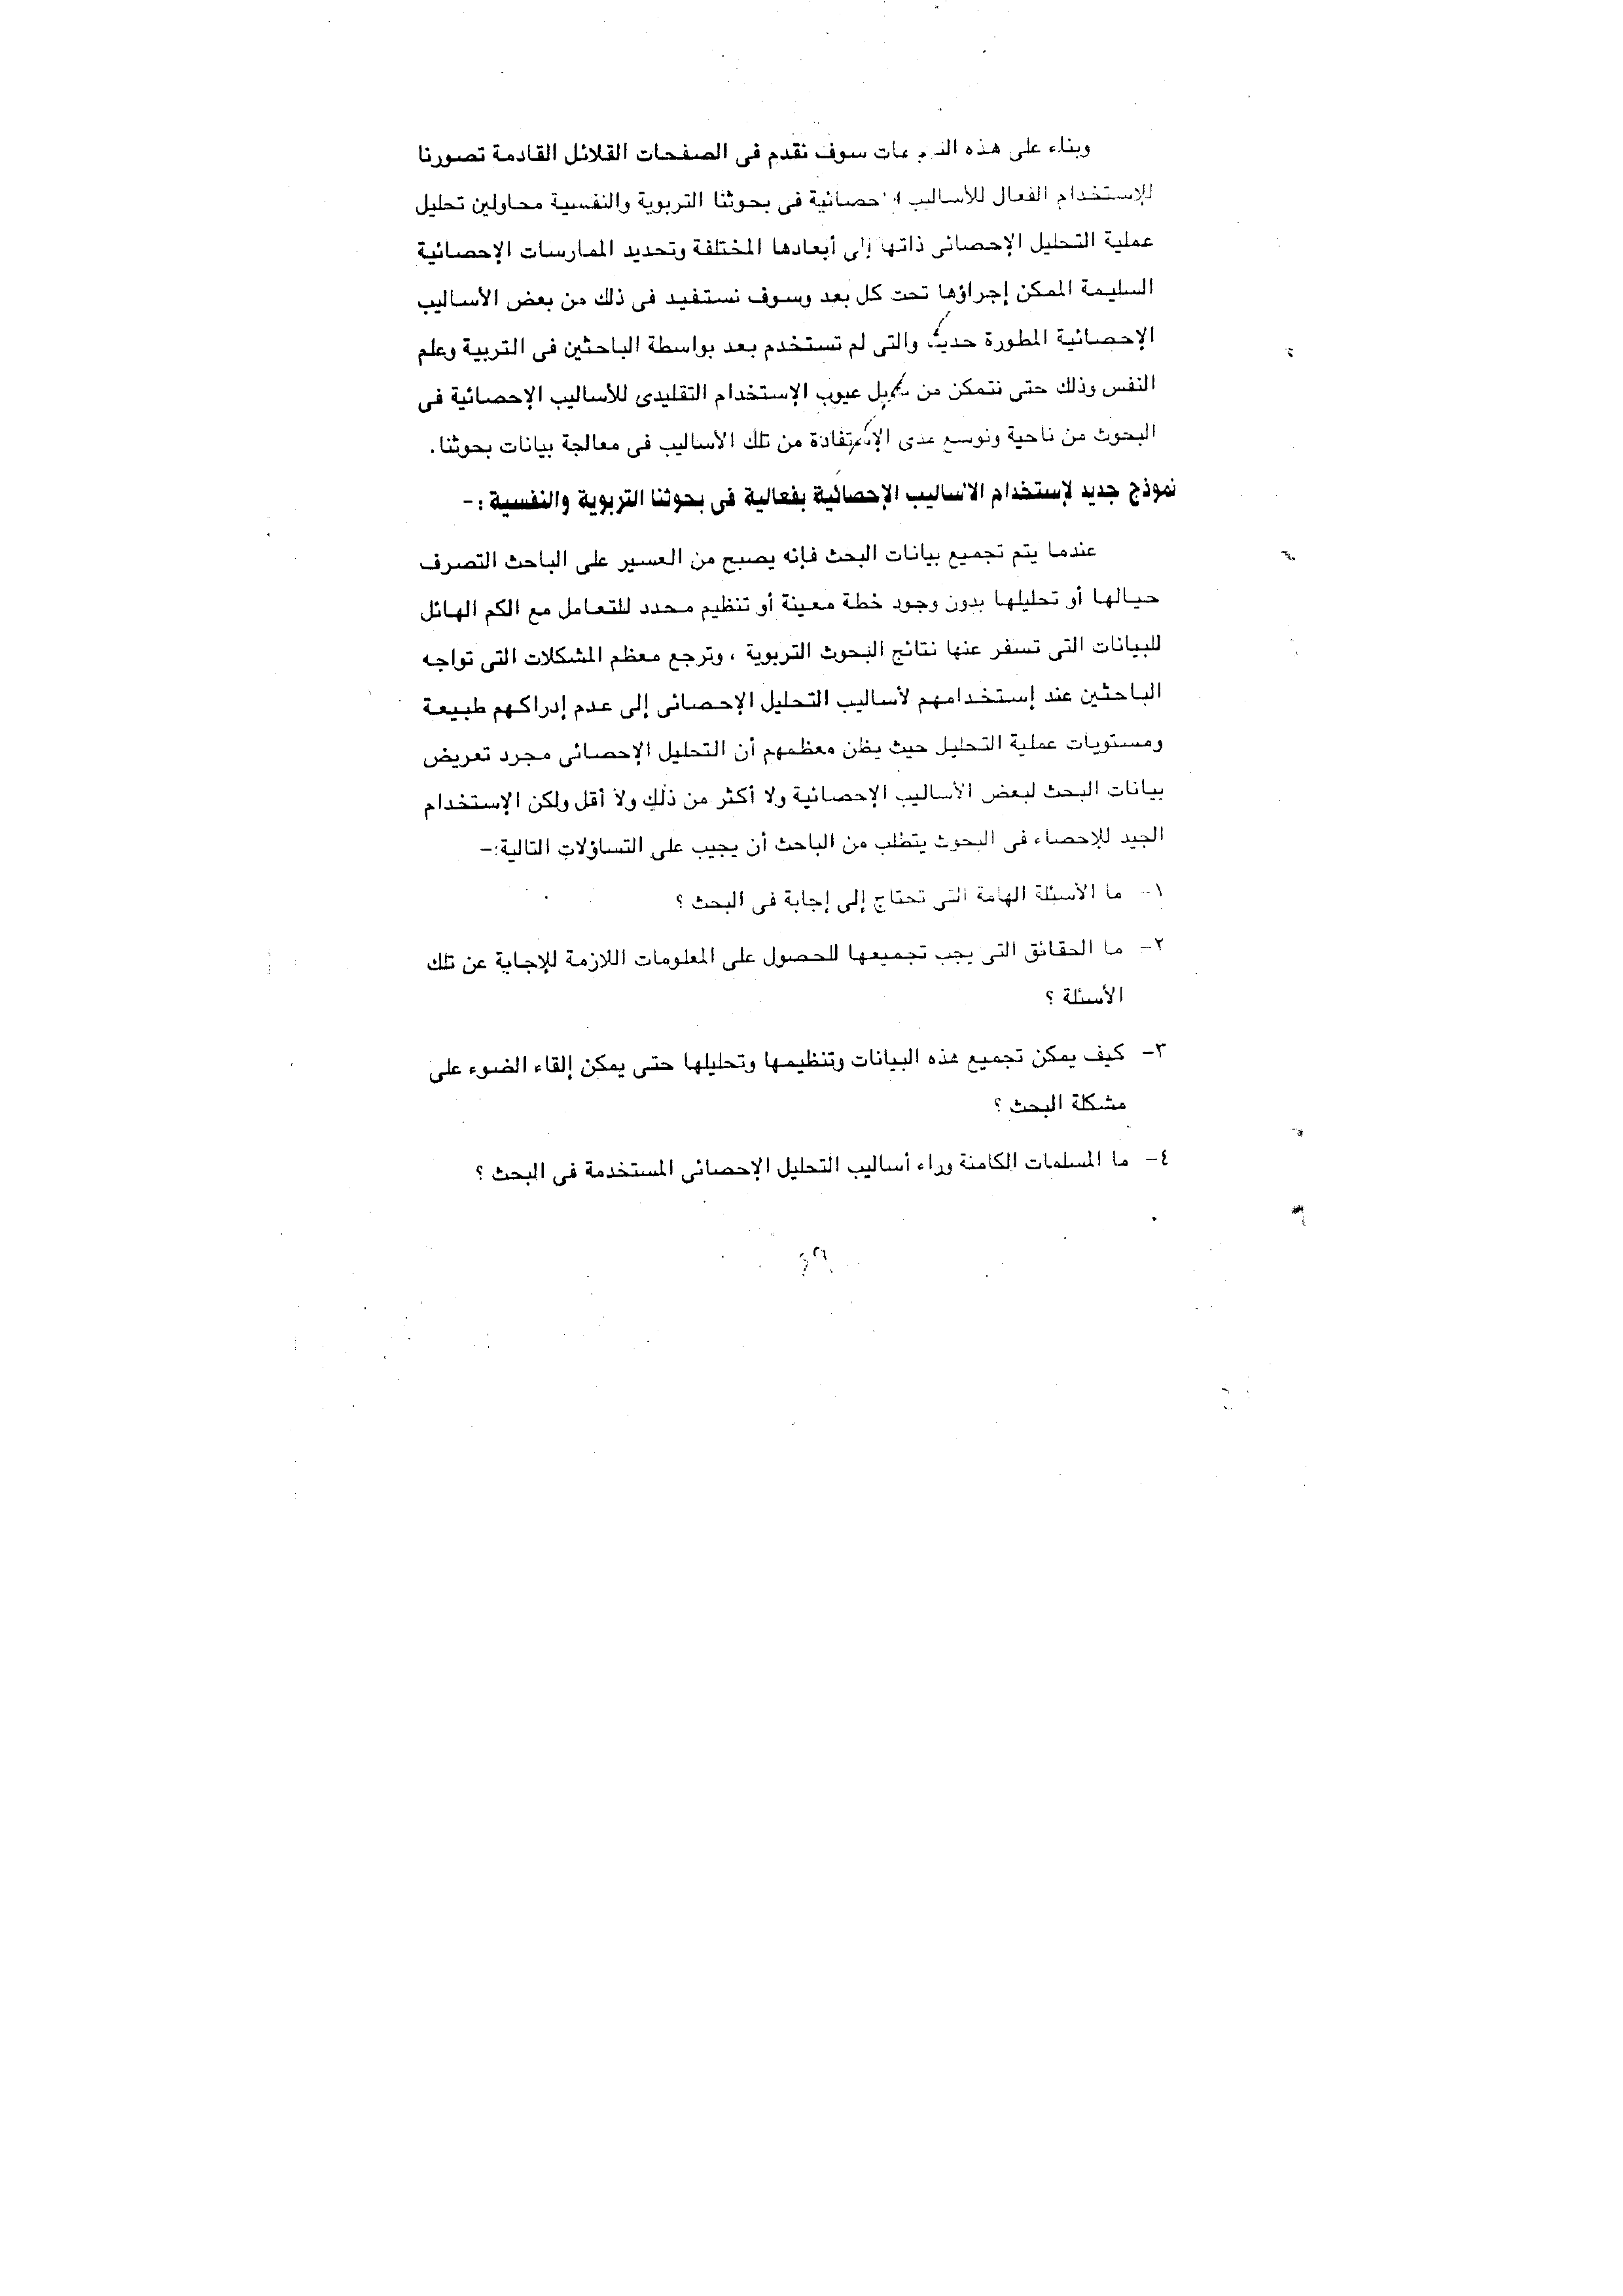 وبناء على هذه سوف نقدم فى الصفحات القلائل القادمة تصورنا
للإستخدام الفعال للأساليب الإحصائية فى بحوثنا التربوية والنفسية محاولين تحليل
عملية التحليل الإحصائى ذاتها إلى أبعادها المختلفة وتحديد الممارسات الإحصائية
السليمة الممكن إجراؤها تحت كل بعد وسوف نستفيد فى ذلك من بعض الأساليب
الإحصائية المطورة حديثا والتى لم تستخدم بعد بواسطة الباحثين فى التربية وعلم
النفس وذلك حتى نتمكن من عيوب الإستخدام التقليدى للأساليب الإحصائية فى
البحوث من ناحية ونوسع مدى الإستفادة من تلك الأساليب فى معالجة بيانات بحوثنا.
نموذج جديد لإستخدام الأساليب الإحصائية بفعالية فى بحوثنا التربوية والنفسية :-
عندما يتم تجميع بيانات البحث فإنه يصبح من العسير على الباحث التصرف
حيالها أو تحليلها بدون وجود خطة معينة أو تنظيم محدد للتعامل مع الكم الهائل
للبيانات التى تسفر عنها نتائج البحوث التربوية ، وترجع معظم المشكلات التى تواجه
الباحثين عند إستخدامهم لأساليب التحليل الإحصائى إلى عدم إدراكهم طبيعة
ومستويات عملية التحليل حيث يظن معظمهم أن التحليل الإحصائى مجرد تعريض
بيانات البحث لبعض الأساليب الإحصائية ولا أكثر من ذلك ولا أقل ولكن الإستخدام
الجيد للإحصاء فى البحوث يتطلب من الباحث أن يجيب على التساؤلات التالية:-
١- ما الأسئلة الهامة التى تحتاج إلى إجابة فى البحث ؟
٢- ما الحقائق التى يجب تجميعها للحصول على المعلومات اللازمة للإجابة عن تلك
الأسئلة ؟
٣- كيف يمكن تجميع هذه البيانات وتنظيمها وتحليلها حتى يمكن إلقاء الضوء على
مشكلة البحث ؟
٤- ما المسلمات الكامنة وراء أساليب التحليل الإحصائى المستخدمة فى البحث ؟